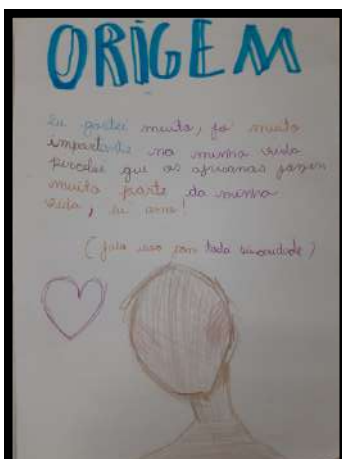 ORIGEM
Eu gostei muito, foi muito
importante na minha vida
perceber que as africanas fazem
muita parte da minha
vida, eu amo!
(falo isso com toda sinceridade)